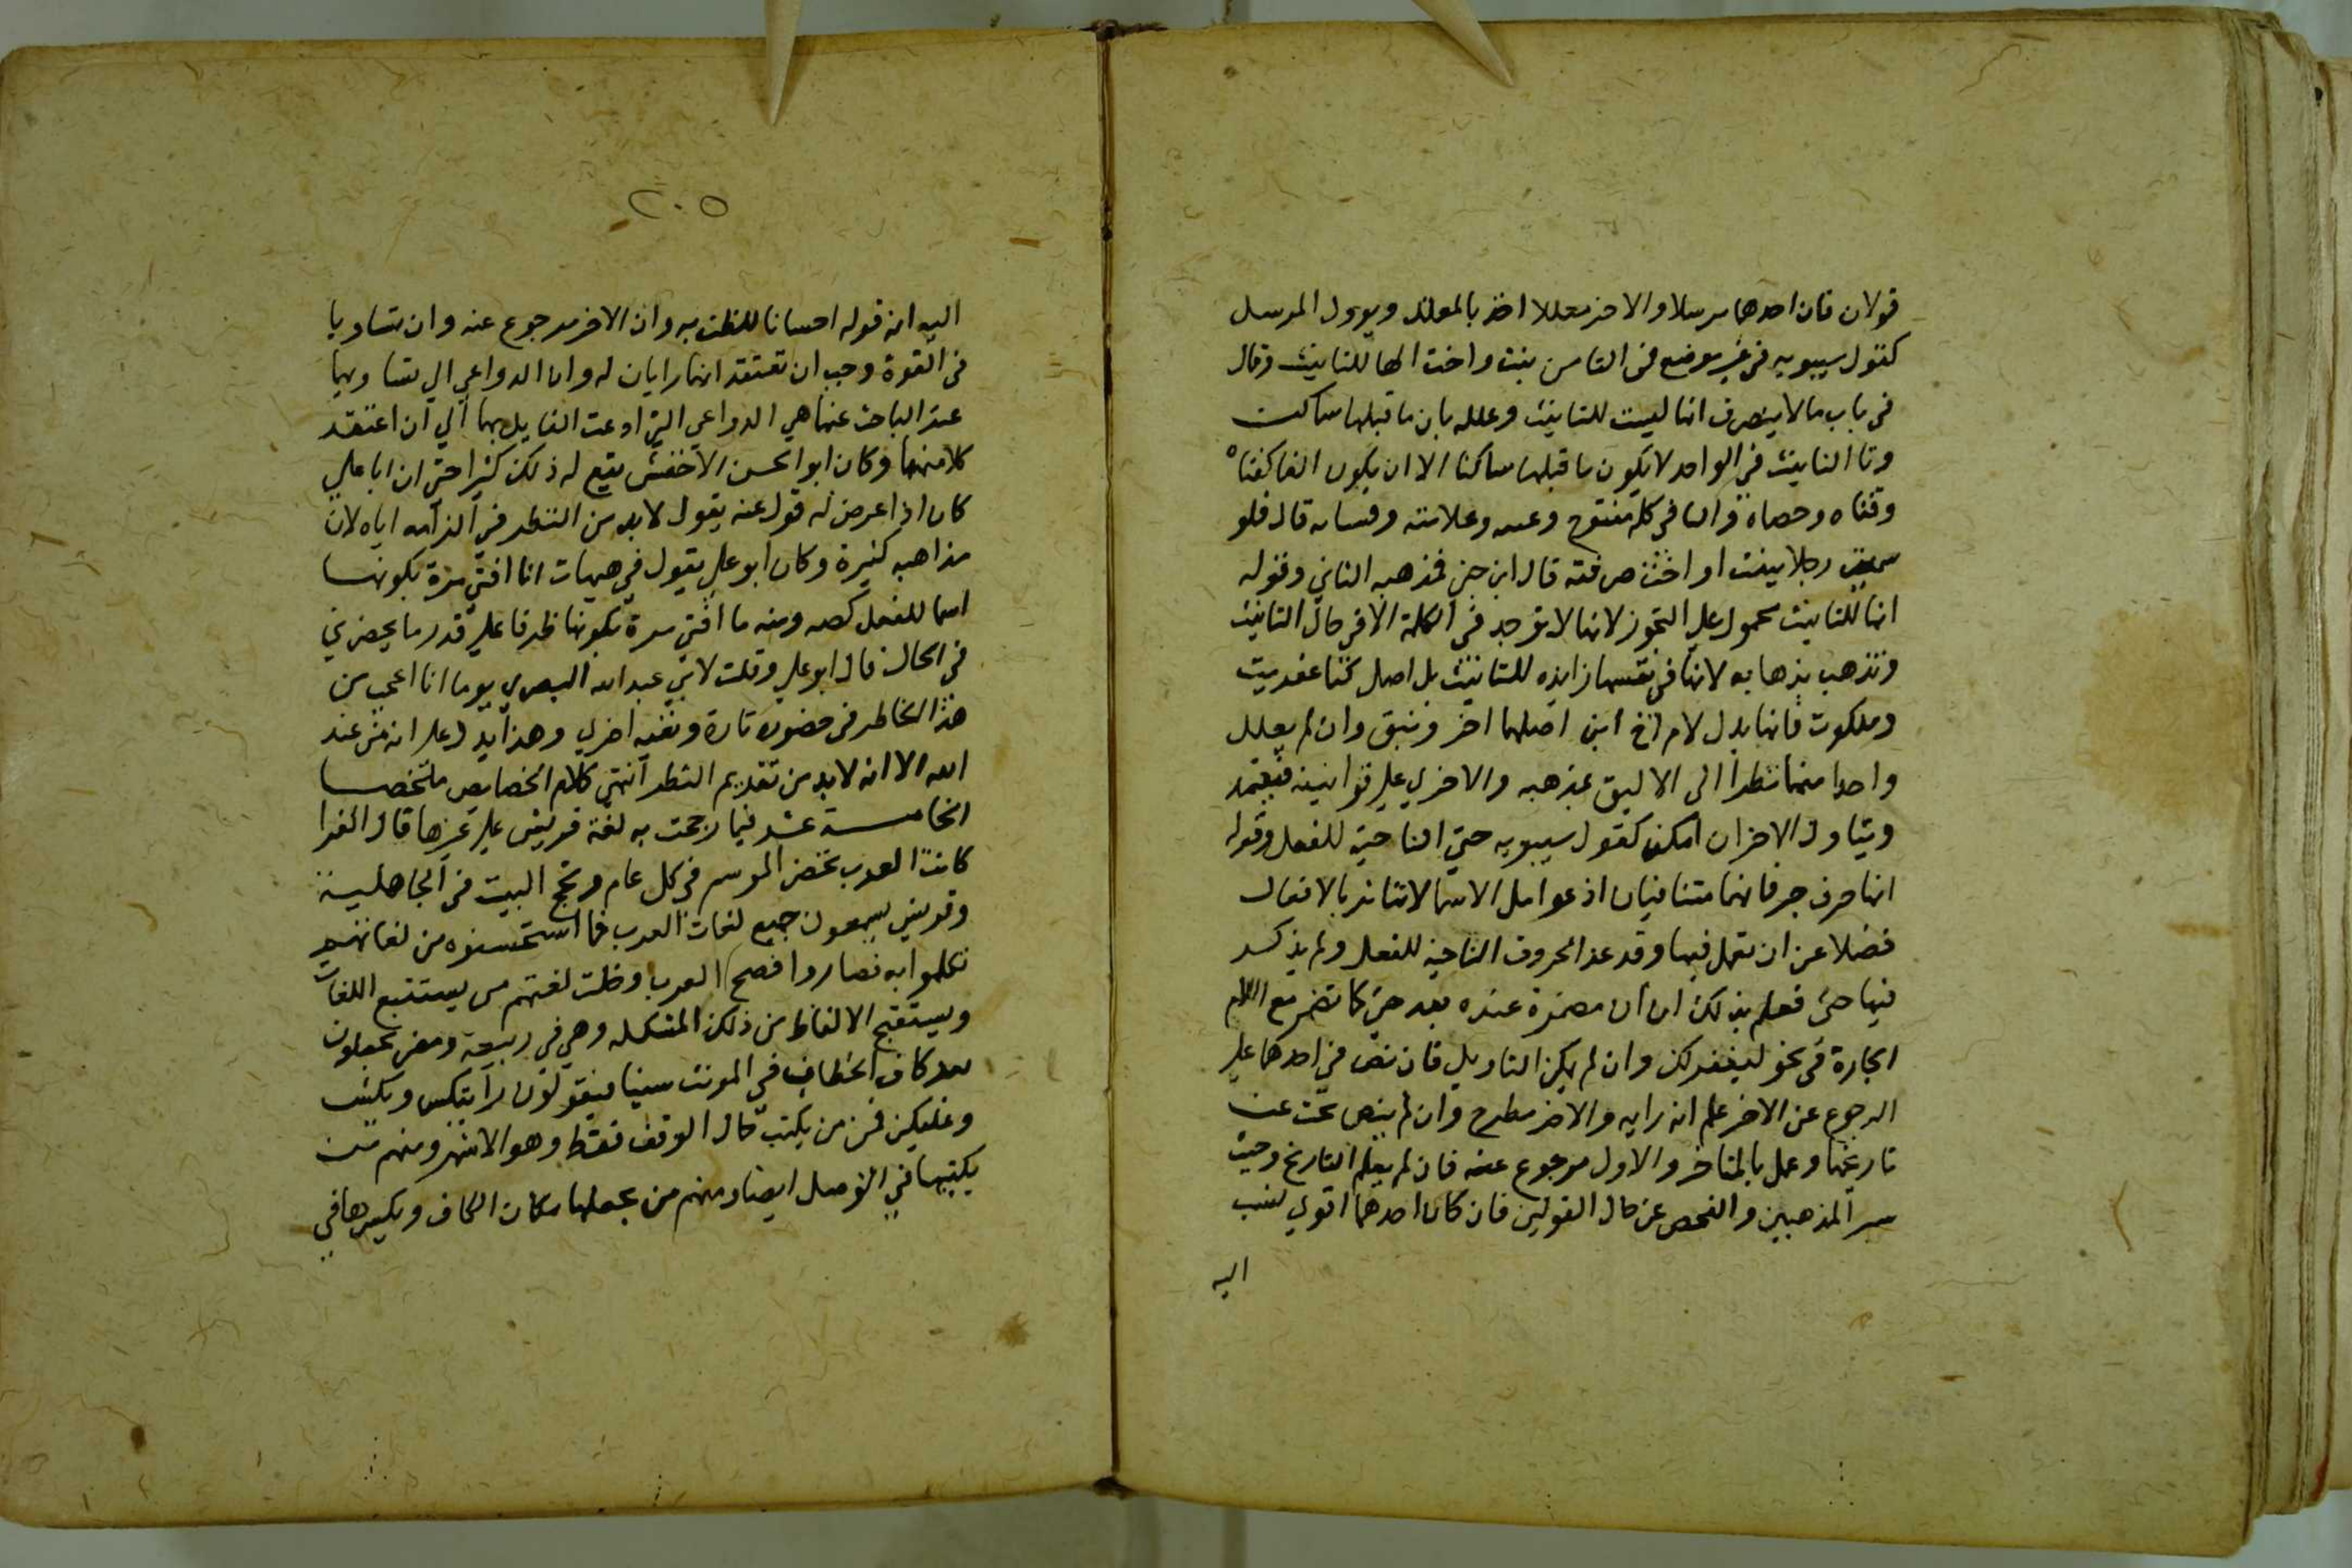 قولان فان احدهما مرسلا والاخر معللا اخذ بالمعلل ويوول المرسل
كقول سيبويه في غير موضع في التا من بنت واخت انها للتانيث وقال
في باب ما لا ينصرف انها ليست للتانيث وعلله بان ما قبلها ساكن
وتا التانيث في الواحد لا يكون ما قبلها ساكنا الا ان يكون الفا كفتاه
وقناه وحصاة والباقي كله مفتوح وعلامته قال فلو
سميت رجلا ببنت او اخت صرفته قال ابن جني فمذهبه الثاني وقوله
انها للتانيث محمول علي التجوز لانها لا توجد في الكلمة الا في حال التانيث
وتذهب بذهابه لانها في نفسها زايده للتانيث بل اصل كتا عفريت
وملكوت فانها بدل لام اخ ابن اصلهما اخو وبنو وان لم يعلل
واحدا منهما نظر الى الاليق بمذهبه والاجري علي قوانينه فيعتمد
ويتاول الاخر ان امكن كقول سيبويه حتي الناصبة للفعل وقوله
انها حرف جر فانهما متنافيان اذ عوامل الاسما لا تباشر الافعال
فضلا عن ان تعمل فيها وقد عد الحروف الناصبة للفعل ولم يذكر
فيها حتى فعلم بذلك ان ان مضمرة عنده بعد حتي كما تضمر مع اللام
الجارة في نحو ليغفر لك وان لم يمكن التاويل فان نص في احدهما علي
الرجوع عن الاخر علم انه رايه والاخر مطرح وان لم ينص بحث عن
تاريخهما وعمل بالمتاخر والاول مرجوع عنه فان لم يعلم التاريخ وجب
سبر المذهبين والفحص عن حال القولين فان كان احدهما اقوي نسب
اليه
٢٠٥
اليه انه قوله احسانا للظن به وان الاخر مرجوع عنه وان تساويا
في القوة وجب ان تعتقد انهما رايان له وان الدواعي الي تساويهما
عند الباحث عنهما هي الدواعي التي ادعت القايل بهما الي ان اعتقد
كلا منهما وكان ابو الحسن الاخفش يقع له ذلك كثيرا حتى ان ابا علي
كان اذا عرض له قول عنه يقول لا بد من النظر في الزامه اياه لان
مذاهبه كثيرة وكان ابو علي يقول في هيهات انا افتي مرة بكونها
اسما للفعل كصه ومنه ما افتي مرة بكونها ظرفا علي قدر ما يحضرني
في الحال قال ابو علي وقلت لابي عبد الله البصري يوما انا اعجب من
هذا الخاطر في حضوره تارة ونفيه اخري وهذا يدل علي انه من عند
الله الا انه لا بد من تقديم النظر انتهي كلام الخصايص ملخصا
الخامسة عشر فيما رجحت به لغة قريش علي غيرها قال الفرا
كانت العرب تحضر الموسم في كل عام وتحج البيت في الجاهلية
وقريش يسمعون جميع لغات العرب فما استحسنوه من لغاتهم
تكلموا به فصاروا افصح العرب وخلت لغتهم من يستتبع اللغات
ويستقبح الالفاظ من ذلك الكشكشه وهي في ربيعة ومضر يجعلون
بعد كاف الخطاب في المونث سينا فيقولون رايتكس وبكس
وعليكس فمن من يكتب حال الوقف فقط وهو الاشهر ومنهم من
يكتبها في الوصل ايضا ومنهم من يجعلها مكان الكاف ويكسرها في